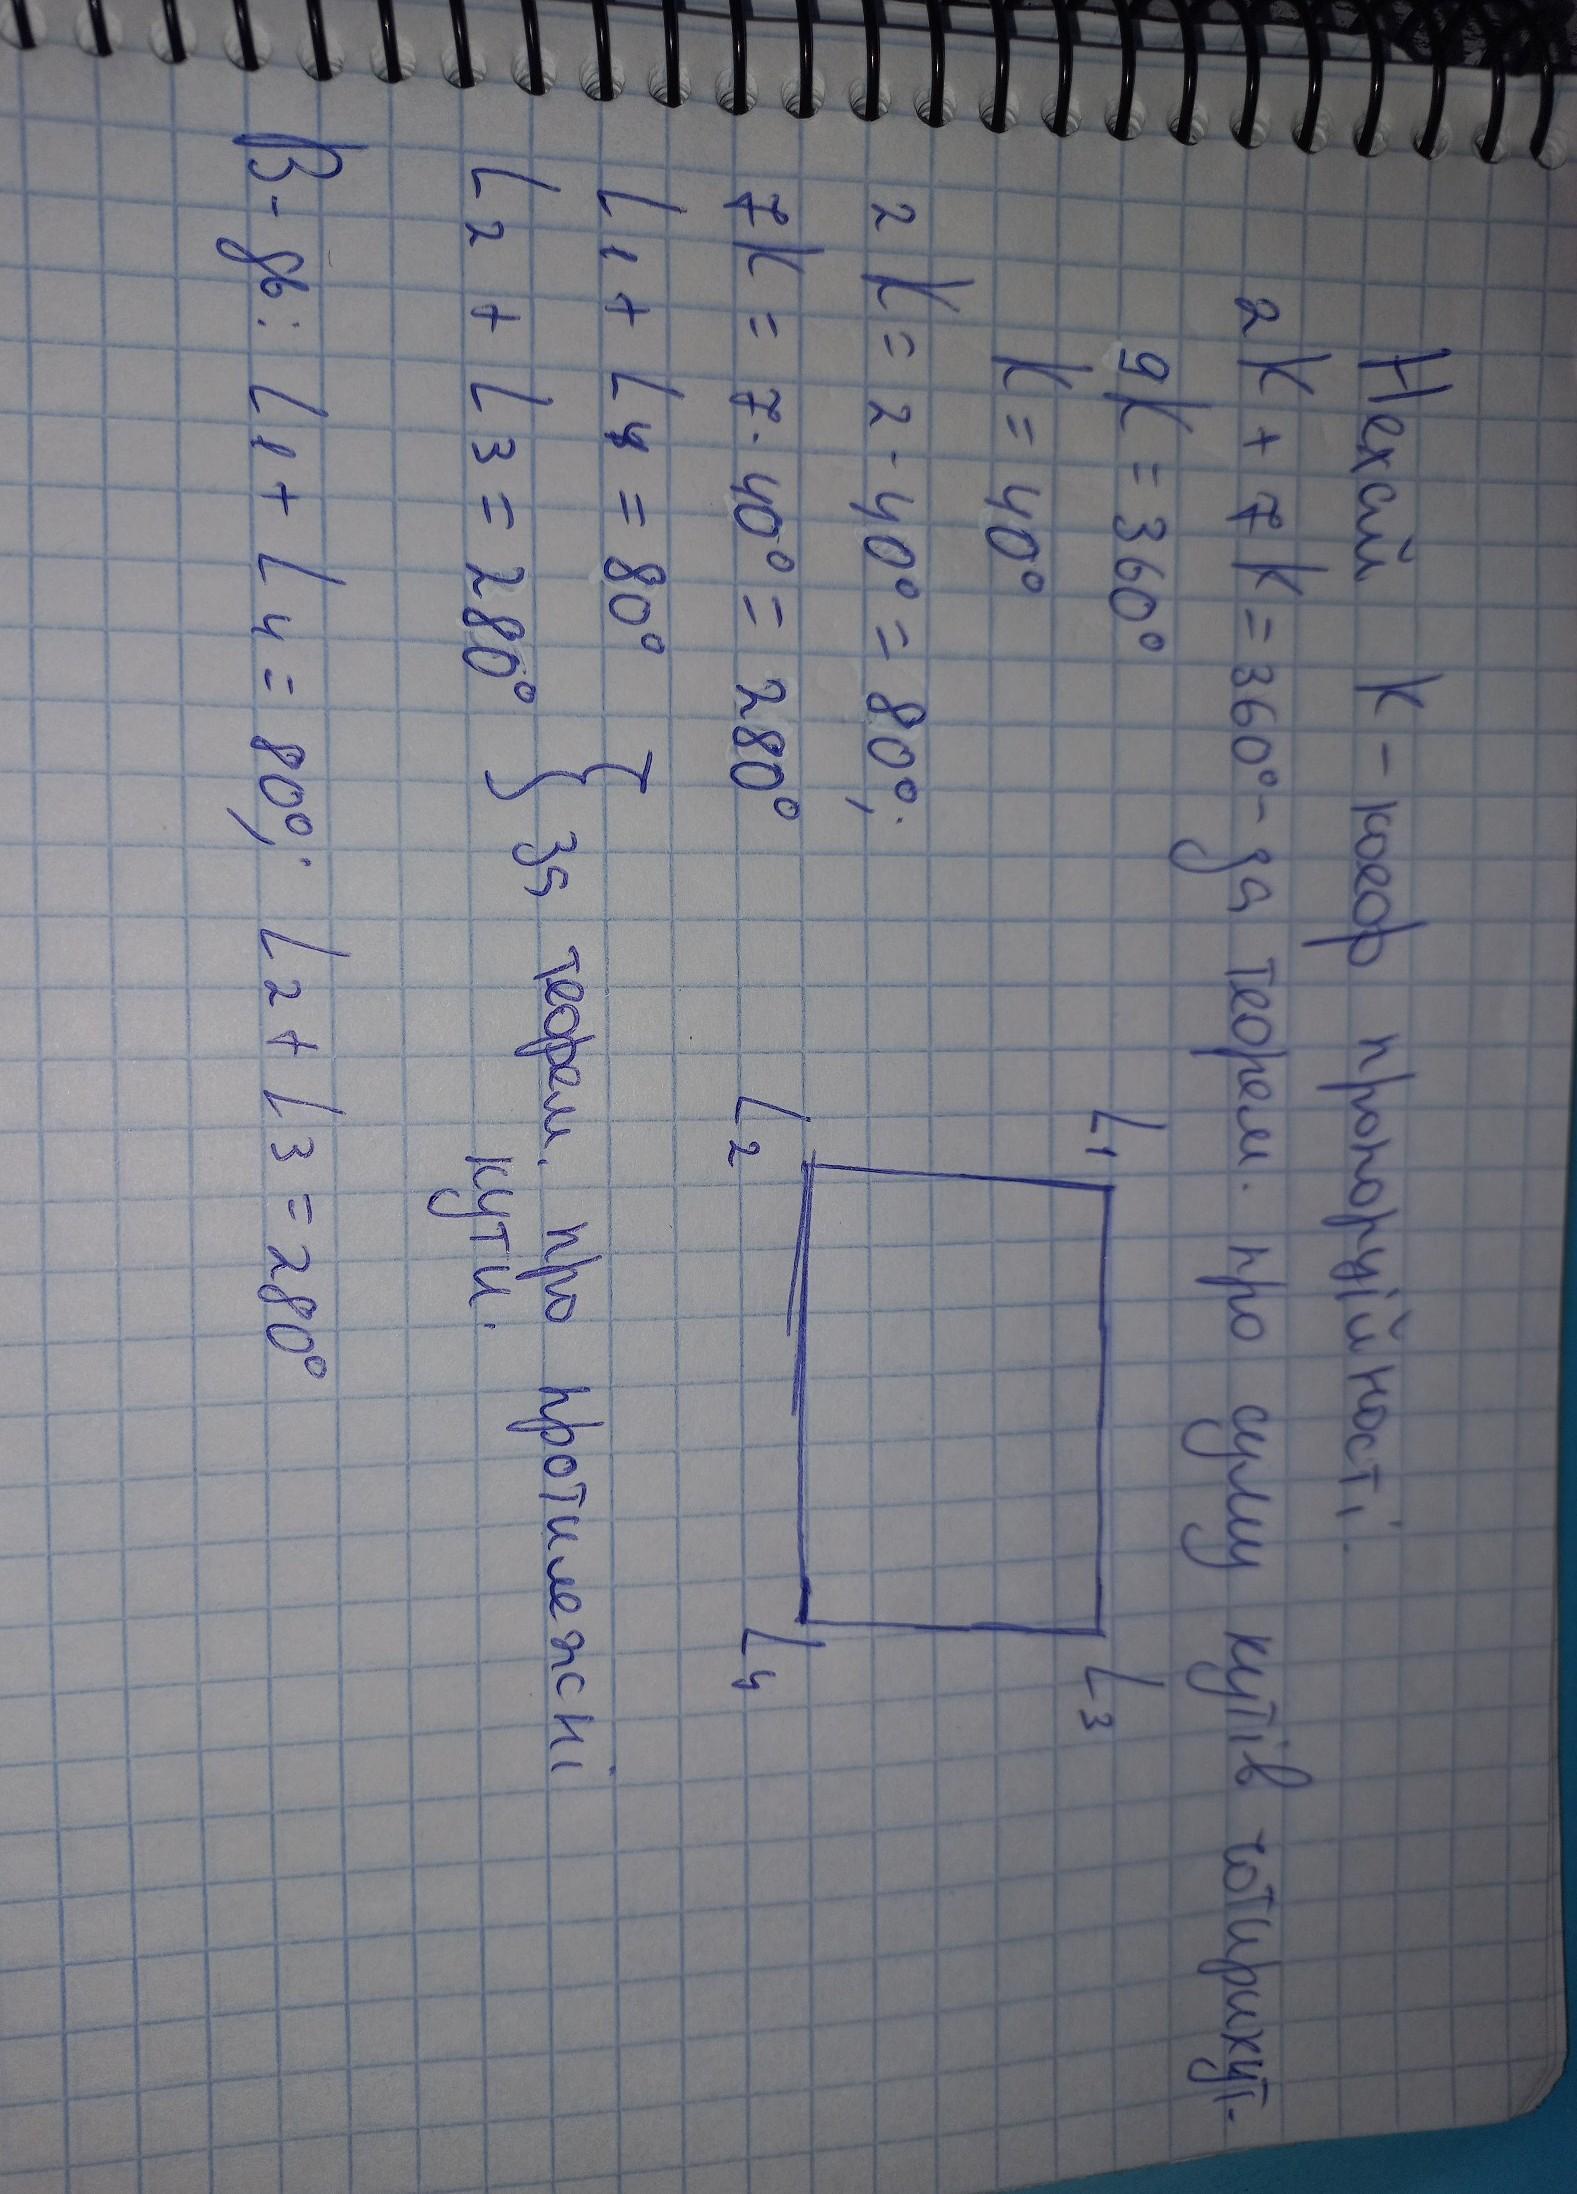 Нехай K - коеф пропорційності.
2K + 7K = 360° - за теорем. про суму кутів чотирикут.
9K = 360°
K = 40°
2K = 2 · 40° = 80°;
7K = 7 · 40° = 280°
∠1 + ∠4 = 80°
∠2 + ∠3 = 280°
} за теорем. про протилежні
кути.
∠1
∠3
∠2
∠4
В-дь: ∠1 + ∠4 = 80°; ∠2 + ∠3 = 280°